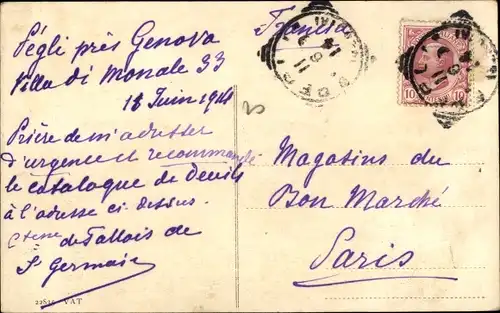 Pégli près Genova
Villa di Monale 33
18 Juin 1914
Prière de m'adresser
d'urgence et recommandé
le catalogue de Deuils
à l'adresse ci-dessus.
Ctesse de Fallois de
St Germain
22819 VAT
Francia
Magasins du
Bon Marché
Paris
10 10